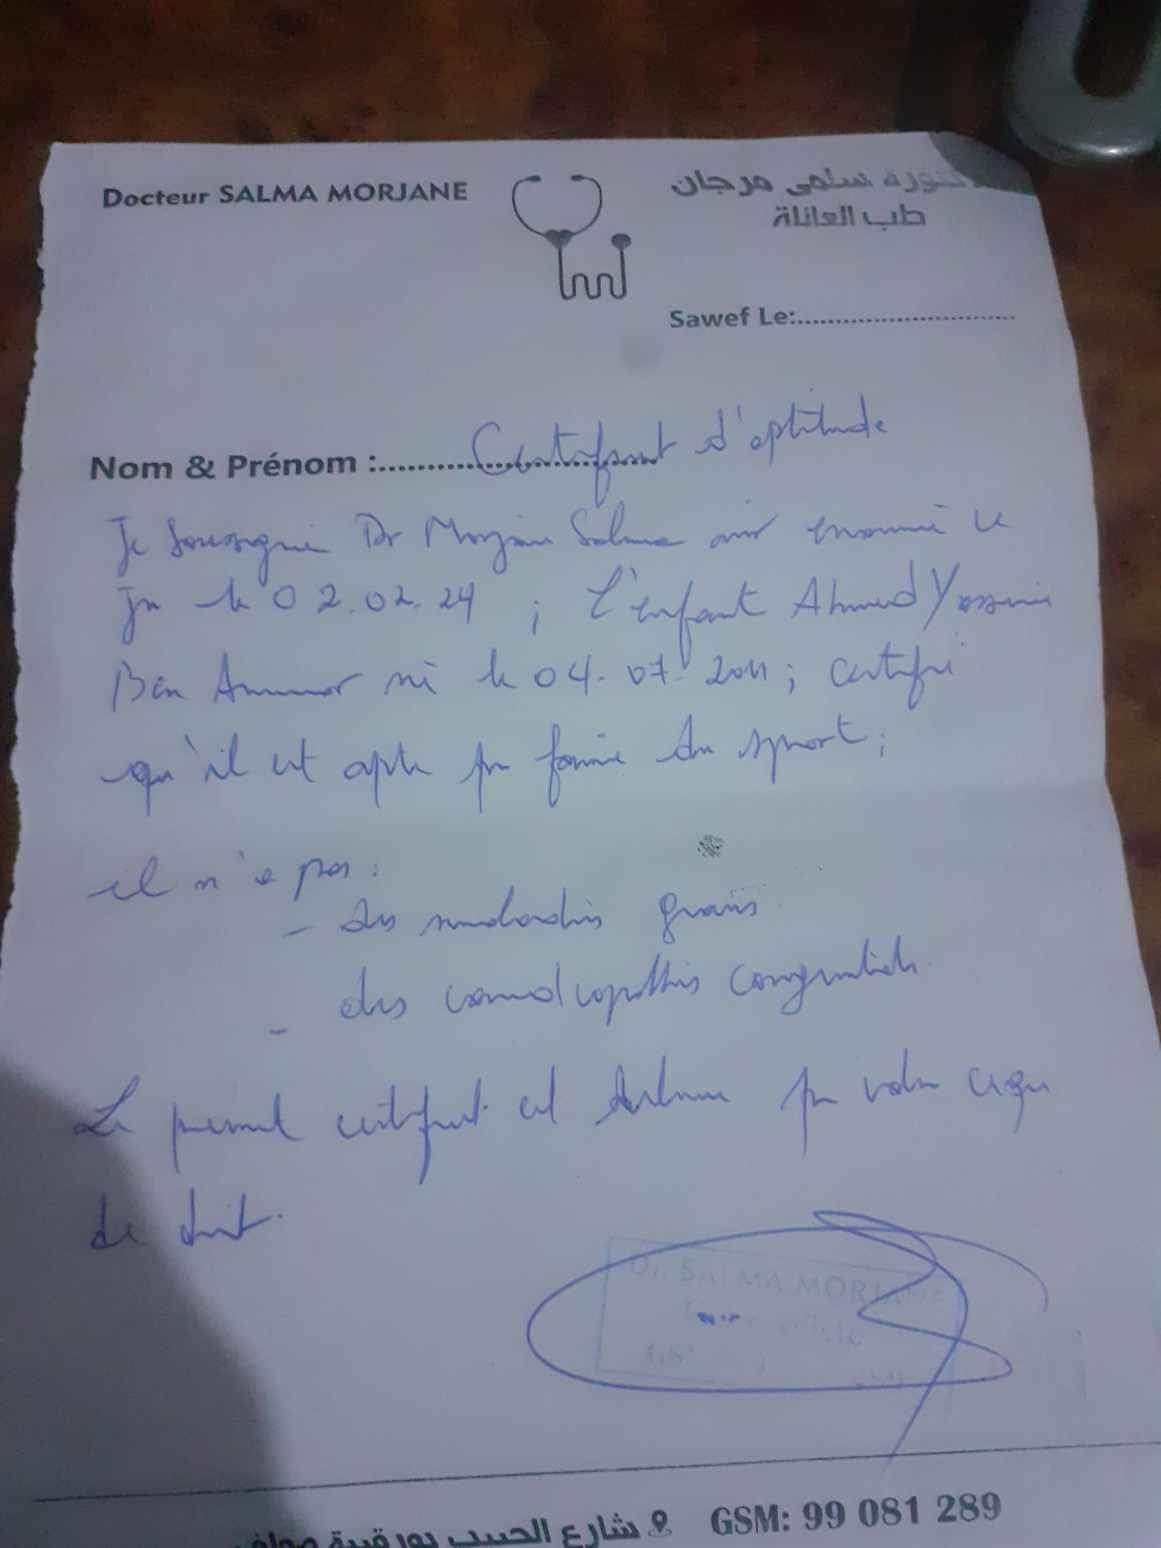 Docteur SALMA MORJANE
سلمى مرجان
طب العائلة
Sawef Le:............................
Nom & Prénom :..............................
Certificat d'aptitude
Je soussigné Dr Morjane Salma avoir examiné ce
jr le 02.02.24 ; l'enfant Ahmed Yassine
Ben Ammar né le 04.07.2011 ; certifie
qu'il est apte pr faire du sport ;
il n'a pas :
- des maladies graves
- des congénitales
Le présent certificat est pr valoir
de droit.
Dr SALMA MORJANE
شارع الحبيب بورقيبة
GSM: 99 081 289